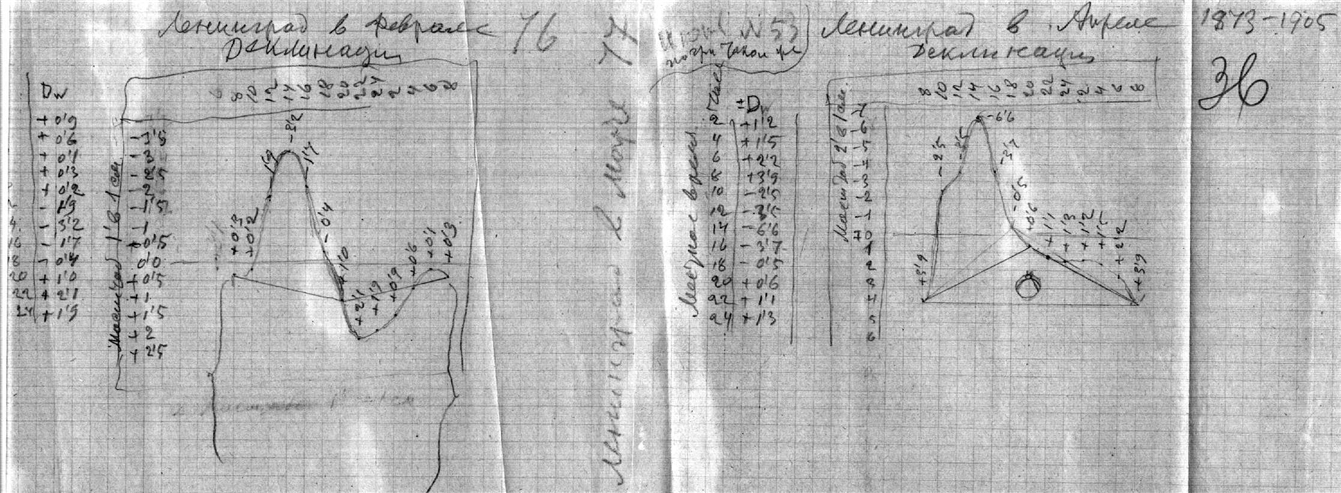 Ленинград в Феврале
Деклинация
76
8 10 12 14 16 18 20 22 24 2 4 6 8
Dw
+ 0'9
+ 0'6
+ 0'1
+ 0'3
+ 0'2
- 1'9
- 3'2
- 1'7
- 0'4
+ 1'0
+ 2'1
+ 1'9
16
18
20
22
24
Масштаб 1' в 1 см
- 3'5
- 3
- 2'5
- 2
- 1'5
- 1
- 0'5
0'0
+ 0'5
+ 1
+ 1'5
+ 2
+ 2'5
+0'3
+0'2
-1'9
-3'2
-1'7
-0'4
+1'0
+2'1
+1'9
+0'9
+0'6
+0'1
+0'3
77
Ленинград в Марте
N 53
Ленинград в Апреле
Деклинация
1873-1905
36
8 10 12 14 16 18 20 22 24 2 4 6 8
Местное время
±Dw
2 +1'2
4 +1'5
6 +2'2
8 +3'9
10 -2'5
12 -3'5
14 -6'6
16 -3'7
18 -0'5
20 +0'6
22 +1'1
24 +1'3
Масштаб 2' в 1 см
7
6
5
4
3
2
1
±0
1
2
3
4
5
6
+3'9
-2'5
-3'5
-6'6
-3'7
-0'5
+0'6
+1'1
+1'3
+1'2
+1'5
+2'2
+3'9